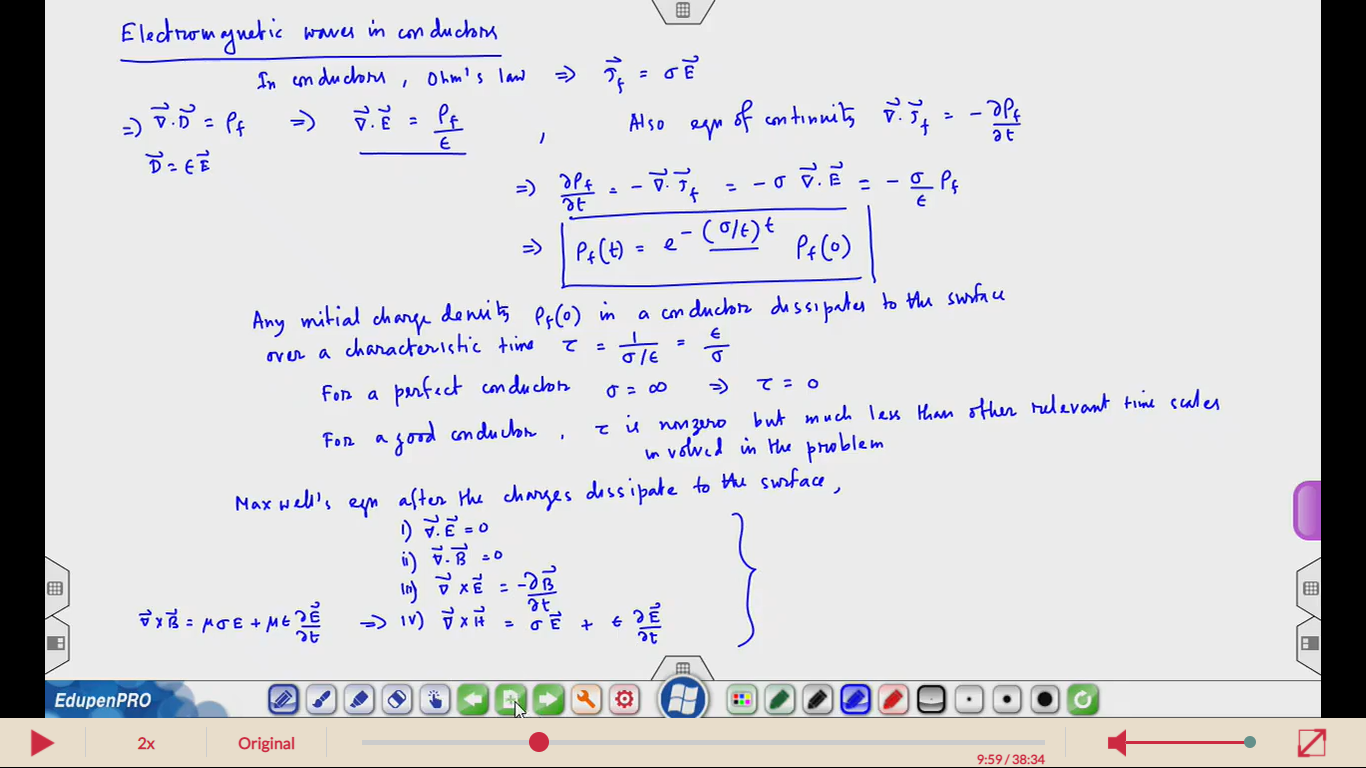 Electromagnetic waves in conductors
In conductors, Ohm's law ⇒ J⃗_f = σ E⃗
⇒ ∇⃗·D⃗ = ρ_f ⇒ ∇⃗·E⃗ = ρ_f/ϵ , Also eqn of continuity ∇⃗·J⃗_f = -∂ρ_f/∂t
D⃗ = ϵE⃗
⇒ ∂ρ_f/∂t = -∇⃗·J⃗_f = -σ ∇⃗·E⃗ = -σ/ϵ ρ_f
⇒ ρ_f(t) = e^{-(σ/ϵ)t} ρ_f(0)
Any initial charge density ρ_f(0) in a conductor dissipates to the surface
over a characteristic time τ = 1/(σ/ϵ) = ϵ/σ
For a perfect conductor σ = ∞ ⇒ τ = 0
For a good conductor, τ is nonzero but much less than other relevant time scales
involved in the problem
Maxwell's eqn after the charges dissipate to the surface,
i) ∇⃗·E⃗ = 0
ii) ∇⃗·B⃗ = 0
iii) ∇⃗×E⃗ = -∂B⃗/∂t
∇⃗×B⃗ = μσE + μϵ ∂E⃗/∂t ⇒ iv) ∇⃗×H⃗ = σE⃗ + ϵ ∂E⃗/∂t
EdupenPRO
2x Original 9:59 / 38:34